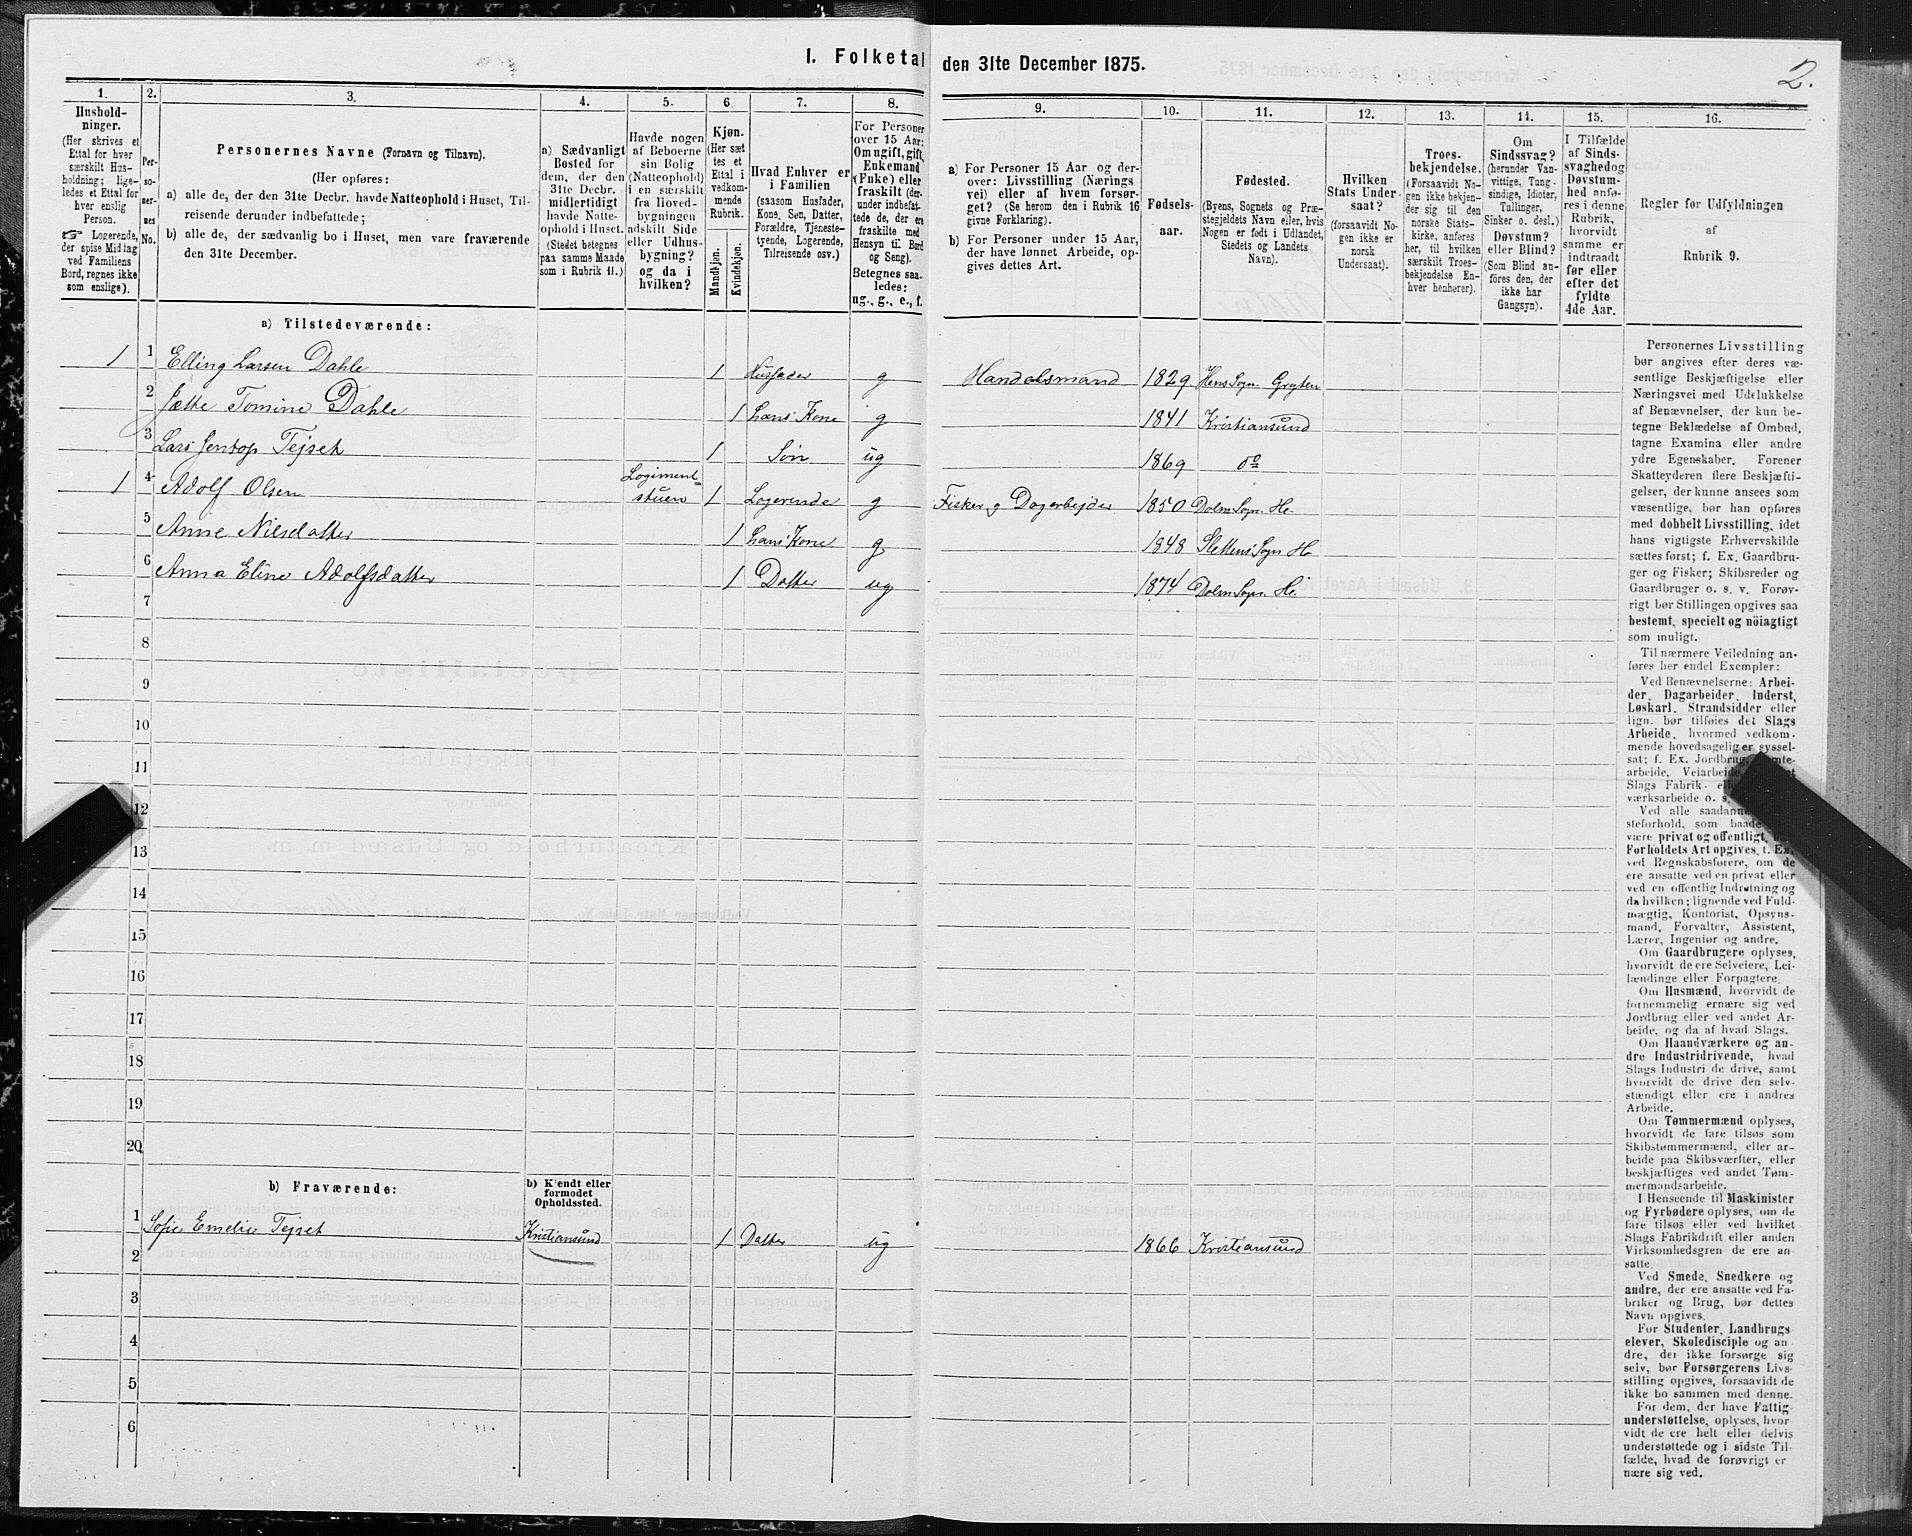 I. Folketal den 31te December 1875.
2.
1.
Hushold-
ninger.
(Her skrives et
Ettal for hver
særskilt Hus-
holdning; lige-
ledes et Ettal for
hver enslig
Person.
Logerende,
der spise Middag
ved Familiens
Bord, regnes ikke
som enslige).
2.
Per-
so-
ner-
nes
No.
3.
Personernes Navne (Fornavn og Tilnavn).
(Her opføres:
a) alle de, der den 31te Decbr. havde Natteophold i Huset, Til-
reisende derunder indbefattede;
b) alle de, der sædvanlig bo i Huset, men vare fraværende
den 31te December.
4.
a) Sædvanligt
Bosted for
dem, der den
31te Decbr.
midlertidigt
havde Natte-
ophold i Huset.
(Stedet betegnes
paa samme Maade
som i Rubrik 11.)
5.
Havde nogen
af Beboerne
sin Bolig
(Natteophold)
i en særskilt
fra Hoved-
bygningen
adskilt Side
eller Udhus-
bygning?
og da i
hvilken?
6
Kjøn.
(Her sæt
tes et
Ettal i
vedkom-
mende
Rubrik.
Mandkjøn.
Kvindekjøn.
7.
Hvad Enhver er
i Familien
(saasom Husfader,
Kone, Søn, Datter,
Forældre, Tjeneste-
tyende, Logerende,
Tilreisende osv.)
8.
For Personer
over 15 Aar:
Om ugift, gift,
Enkemand
(Enke) eller
fraskilt (der-
under indbefat-
tede de, der ere
fraskilte med
Hensyn til Bord
og Seng).
Betegnes saa-
ledes:
ug., g., e., f.
9.
a) For Personer 15 Aar og der-
over: Livsstilling (Nærings
vei) eller af hvem forsør-
get? (Se herom den i Rubrik 16
givne Forklaring).
b) For Personer under 15 Aar,
der have lønnet Arbeide, op-
gives dettes Art.
10.
Fødsels-
aar.
11.
Fødested.
(Byens, Sognets og Præ-
stegjeldets Navn eller, hvis
Nogen er født i Udlandet,
Stedets og Landets
Navn).
12.
Hvilken
Stats Under-
saat?
(forsaavidt No-
gen ikke er
norsk
Undersaat).
13.
Troes-
bekjendelse.
(Forsaavidt No-
gen ikke bekjen-
der sig til den
norske Stats-
kirke, anføres
her, til hvilken
særskilt Troes-
bekjendelse En-
hver henhører).
14.
Om
Sindssvag?
(herunder Van-
vittige, Tung-
sindige, Idioter,
Tullinger,
Sinker o. desl.)
Døvstum?
eller Blind?
(Som Blind an-
føres den, der
ikke har
Gangsyn).
15.
I Tilfælde
af Sinds-
svaghed og
Døvstum-
hed anfø-
res i denne
Rubrik,
hvorvidt
samme er
indtraadt
før eller
efter det
fyldte
4de Aar.
16.
Regler for Udfyldningen
af
Rubrik 9.
a) Tilstedeværende:
1 1 Elling Larsen Dahle 1 Husfader g Handelsmand 1829 Hens Sogn. Gryten
2 Jette Tomine Dahle 1 hans Kone g 1841 Kristiansund
3 Lars Jentop Tejset 1 Søn ug 1869 do
1 4 Adolf Olsen Logiment-
stuen 1 Logerende g Fisker g Dagarbejder 1850 Dolm Sogn. He.
5 Anne Nilsdatter 1 hans Kone g 1848 Slettens Sogn He
6 Anna Eline Adolfsdatter 1 Datter ug 1874 Dolm Sogn. He.
7
8
9
10
11
12
13
14
15
16
17
18
19
20
b) Fraværende:
b) Kjendt eller
formodet
Opholdssted.
1 Sofie Emelie Tejset Kristiansund 1 Datter ug 1866 Kristiansund
2
3
4
5
6
Personernes Livsstilling
bør angives efter deres væ-
sentlige Beskjæftigelse eller
Næringsvei med Udelukkelse
af Benævnelser, der kun be-
tegne Beklædelse af Ombud,
tagne Examina eller andre
ydre Egenskaber. Forener
Skatteyderen flere Beskjæfti-
gelser, der kunne ansees som
væsentlige, bør han opføres
med dobbelt Livsstilling, idet
hans vigtigste Erhvervskilde
sættes først; f. Ex. Gaardbru-
ger og Fisker; Skibsreder og
Gaardbruger o. s. v. Forøv-
rigt bør Stillingen opgives saa
bestemt, specielt og nöiagtigt
som muligt.
Til nærmere Veiledning an-
føres her endel Exempler:
Ved Benævnelserne: Arbei-
der, Dagarbeider, Inderst,
Løskarl, Strandsidder eller
lign. bør tilføies det Slags
Arbeide, hvormed vedkom-
mende hovedsagelig er syssel-
sat; f. Ex. Jordbrug,
arbeide, Veiarbeide,
Slags Fabrik-
værksarbeide o. s.
Ved alle saadanne
steforhold, som baade
være privat og offentligt,
Forholdets Art opgives, t. Ex.
ved Regnskabsførere, om de
ere ansatte ved en privat eller
ved en offentlig Indretning og
da hvilken; lignende ved Fuld-
mægtig, Kontorist, Opsyns-
mand, Forvalter, Assistent,
Lærer, Ingeniør og andre.
Om Gaardbrugere oplyses,
hvorvidt de ere Selveiere, Lei-
lændinge eller Forpagtere.
Om Husmænd, hvorvidt de
fornemmelig ernære sig ved
Jordbrug eller ved andet Ar-
beide, og da af hvad Slags.
Om Haandværkere og an-
dre Industridrivende, hvad
Slags Industri de drive, samt
hvorvidt de drive den selv-
stændigt eller ere i andres
Arbeide.
Om Tømmermænd oplyses,
hvorvidt de fare tilsøs som
Skibstømmermænd, eller ar-
beide paa Skibsværfter, eller
beskjæftiges ved andet Tøm-
mermandsarbeide.
I Henseende til Maskinister
og Fyrbødere oplyses, om de
fare tilsøs eller ved hvilket
Slags Fabrikdrift eller anden
Virksomhedsgren de ere an-
satte.
Ved Smede, Snedkere og
andre, der ere ansatte ved Fa-
briker og Brug, bør dettes
Navn opgives.
For Studenter, Landbrugs
elever, Skoledisciple og an-
dre, der ikke forsørge sig
selv, bør Forsørgerens Livs-
stilling opgives, forsaavidt de
ikke bo sammen med denne.
For dem, der have Fattig-
understøttelse, oplyses, hvor-
vidt de ere helt eller delvis
understøttede og i sidste Til-
fælde, hvad de forøvrigt er
nære sig ved.